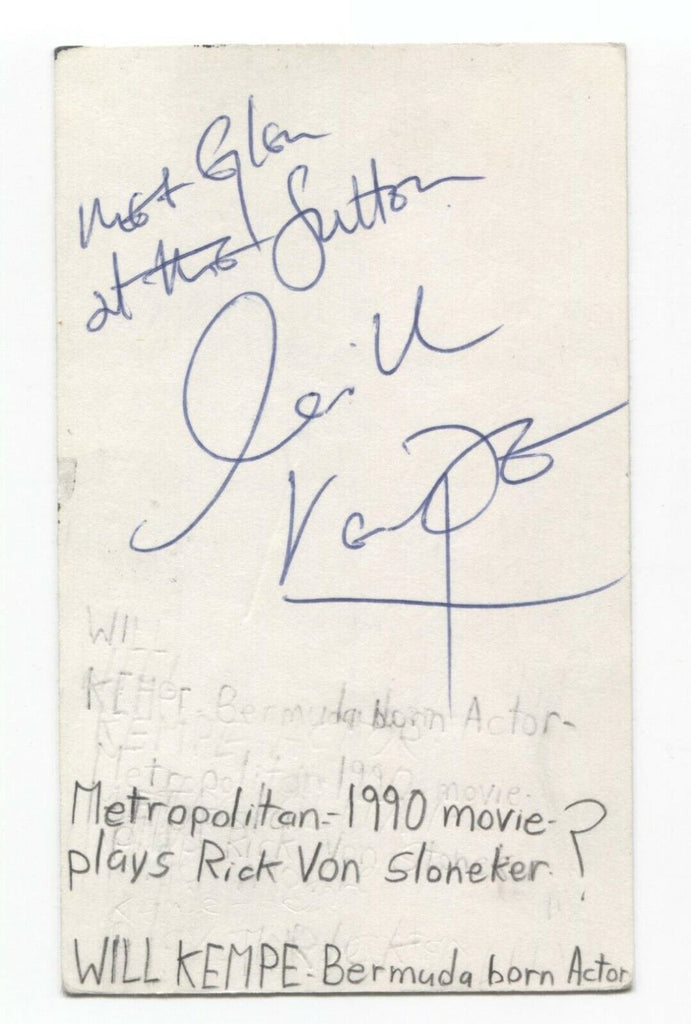 met Glen
at the Sutton
Will
Kempe
WILL
KEMPE - Bermuda born Actor-
KEMPE
Metropolitan 1990 movie-
Metropolitan - 1990 movie- ?
plays Rick Von Sloneker
WILL KEMPE - Bermuda born Actor